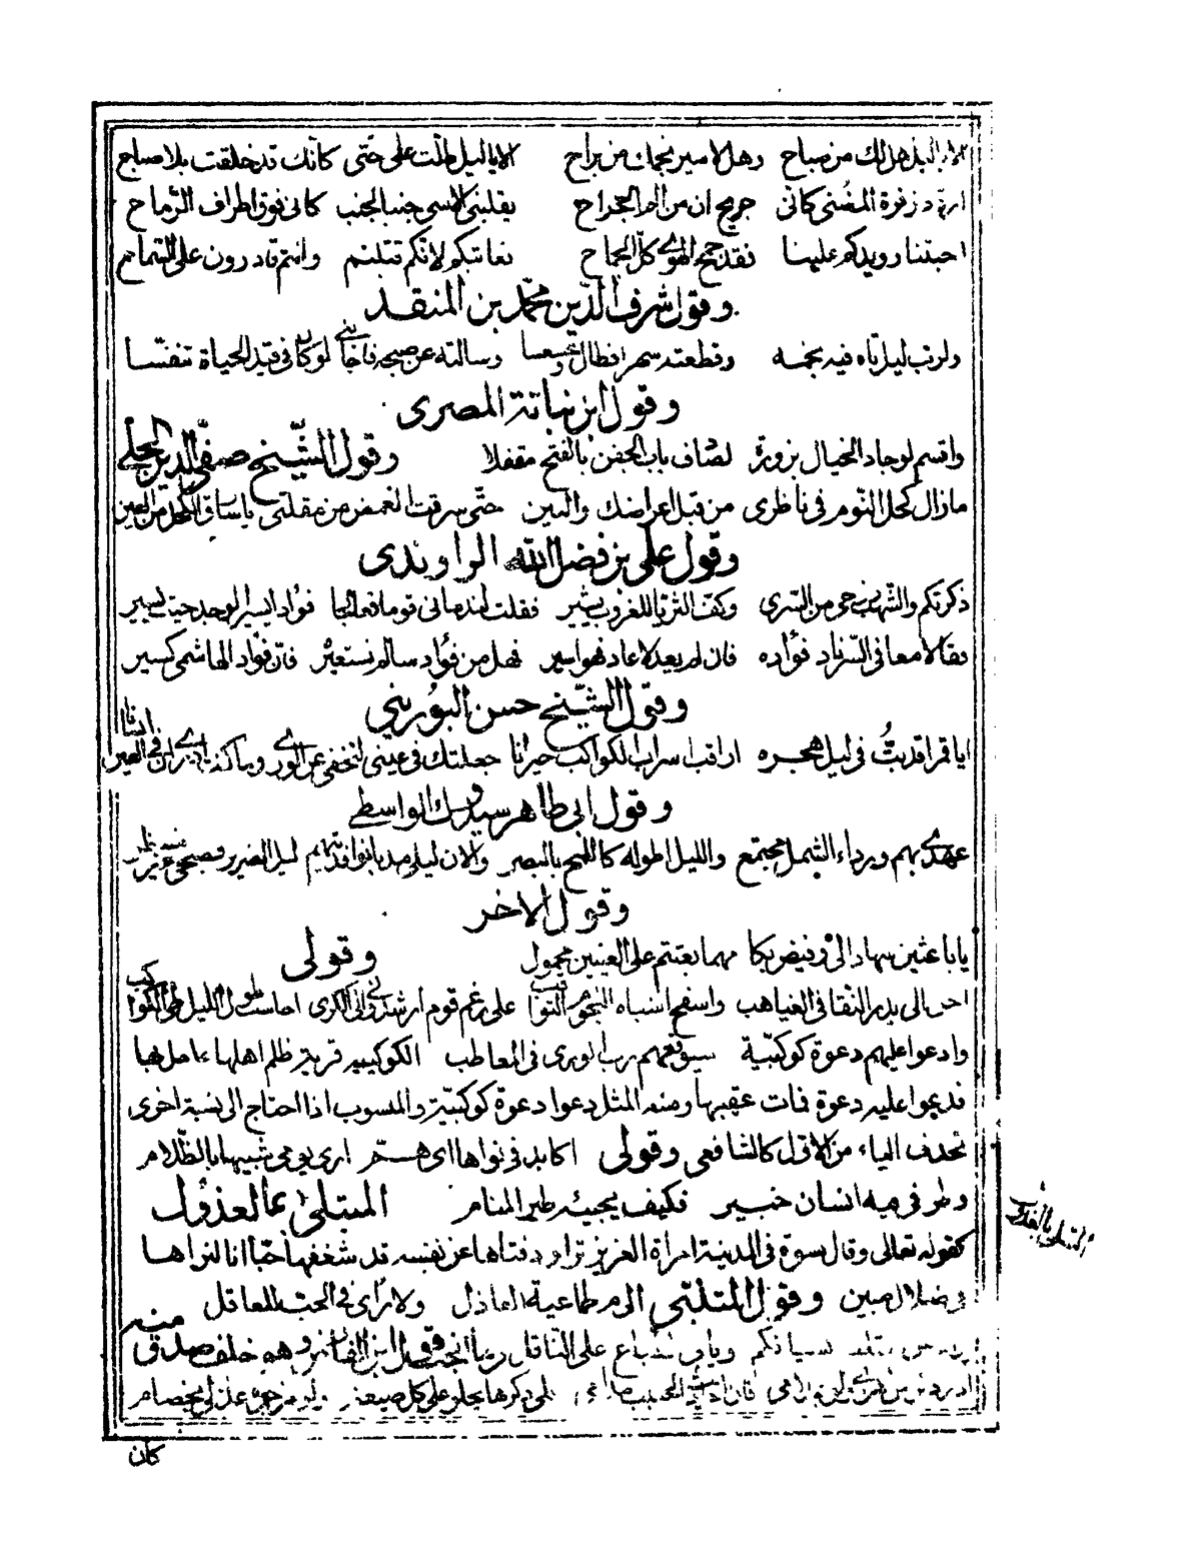 هل لك من صباح وهل لاسير نجمك من براح الا يا ليل طلت على حتى كانك قد خلقت بلا صباح
اردد زفرة المضنى كانى جريح ان من الم الجراح يقلبنى الاسى جنبا لجنب كانى فوق اطراف الرماح
احبتنا رويدكم علينا فقد جمح الهوى كل الجماح نعاتبكم لانكم قتلتم وانتم قادرون على السماح
وقول شرف الدين محمد بن المنقد
ولرب ليل تاه فيه نجمه وقطعته سهرا فطال وعسعسا وسالته عن صبحه فاجابنى لو كان فى قيد الحياة تنفسا
وقول ابن نباتة المصرى
واقسم لو جاد الخيال بزورة لصادف باب الجفن بالفتح مقفلا وقول الشيخ صفى الدين الحلى
ما زال كحل النوم فى ناظرى من قبل اعراضك والبين حتى سرقت الغمض من مقلتى يا سارق الكحل من العين
وقول على بن فضل الله الراوندى
ذكرتكم والشهب حمى من السرى وكف الثريا للغروب يشير فقلت لندمانى قوما فعالجا فؤاد اسير الوجد حيث يسير
فقالا معافى السرناد فؤاده فان لم يعد لا عاد فهو اسير فهل من فؤاد سالم نستعيره فان فؤاد الهاشمى كسير
وقول الشيخ حسن البورينى
ايا قمرا قد بت فى ليل هجره اراقب اسراب الكواكب حيرانا جعلتك فى عينى لتخفى عن الورى وما كنت ادرى ان فى العين انسانا
وقول ابى طاهر سيدوك الواسطى
عهدى بهم ورداء الشمل مجتمع والليل اطوله كاللمح بالبصر والان ليلى مذ بانوا فديتهم ليل الضرير فصبحى غير منتظر
وقول الاخر
يا باعثين سهادا لى وفيض بكا مهما بعثتم على العينين محمول وقولى
احن الى بدر النقا فى الغياهب واسفح اشباه النجوم الثواقب على رغم قوم ارشدونى الى الكرى احاسب طول الليل طى الكواكب
وادعوا عليهم دعوة كوكبية سيوقعهم رب الورى فى المعاطب الكوكبيه قرية ظلم اهلها عاملها
فدعوا عليه دعوة فمات عقيبها ومنه المثل دعوا دعوة كوكبية والمنسوب اذا احتاج الى نسبة اخرى
تحذف الياء من الاول كالشافعى وقولى اكابد فى نواها اى هم ارى يومى شبيها بالظلام
وطرفى فيه انسان خبير فكيف يجيئه طير المنام المبتلى بالعذول
كقوله تعالى وقال نسوة فى المدينة امراة العزيز تراود فتاها عن نفسه قد شغفها حبا انا لنراها
فى ضلال مبين وقول المتنبى الى م طماعية العاذل ولا راى فى الحب للعاقل
يراد من القلب نسيانكم وتابى الطباع على الناقل وقول ابن الفارض وهو خلف صدق منه
ادر ذكر من اهوى ولو بملامى فان احاديث الحبيب مدامى فلى ذكرها يحلو على كل صيغة ولو مزجوه عذلى بخصام
المبتلى بالعذول
كان